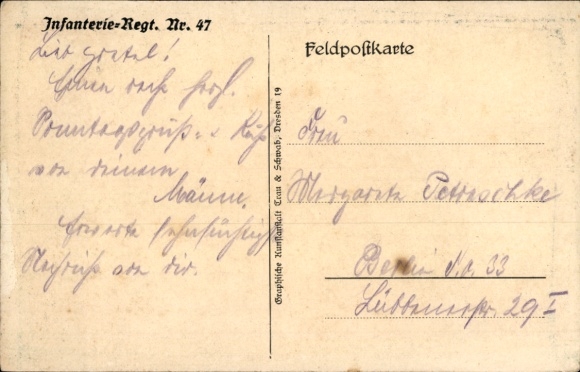 Infanterie-Regt. Nr. 47
Lieb gretel!
Einen recht herzl.
Sonntagsgruß u. Kuß
von deinem
Männe.
Erwarte sehnsüchtig
Nachricht von dir.
Graphische Kunstanstalt Trau & Schwab, Dresden 19
Feldpostkarte
Frau
Margarete Petraschke
Berlin N.o. 33
Lübbenerstr. 29 I